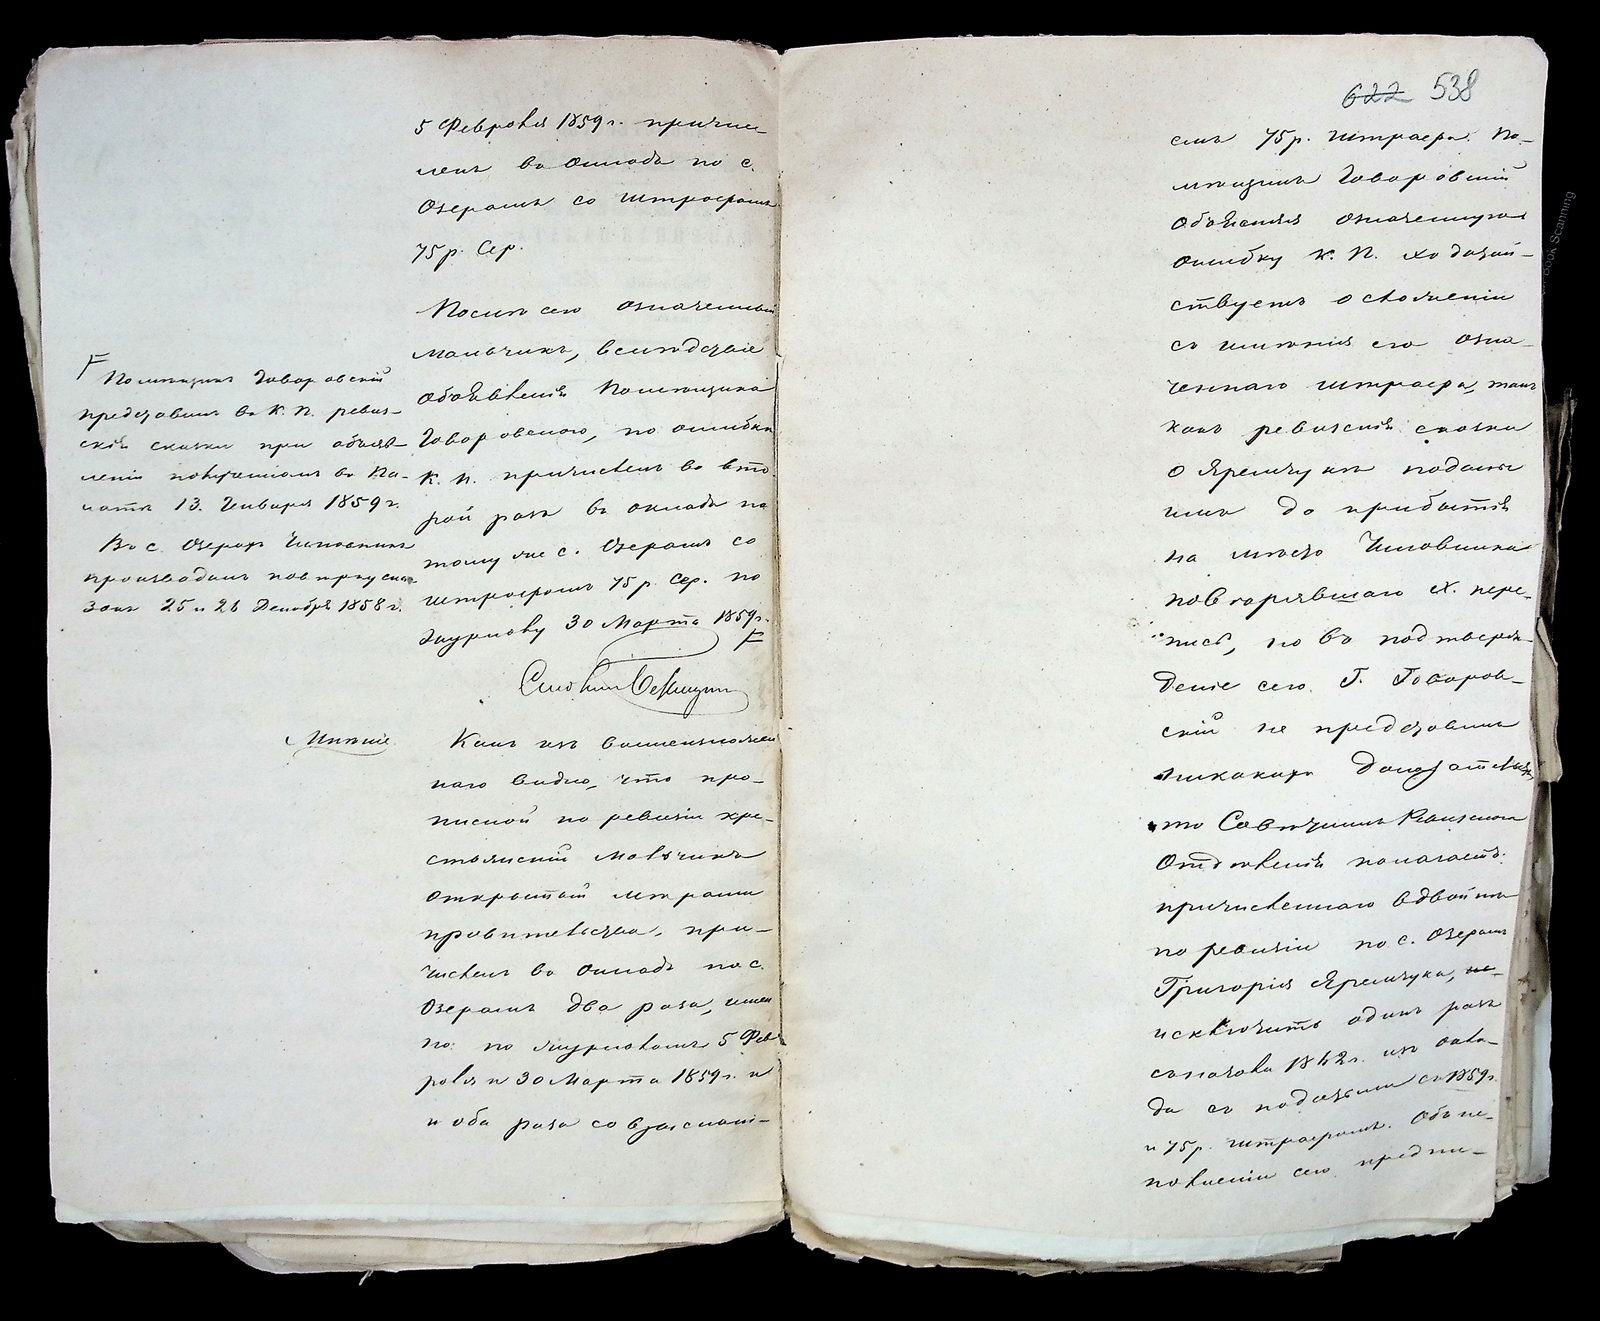 5 Февраля 1859 г. причис-
ленъ въ окладъ по с.
Озерамъ со штрафомъ
75 р. сер.
Послѣ сего означенный
мальчикъ, вслѣдствіе
объявленія Помѣщика
Говоровскаго, по ошибкѣ
К. П. причисленъ во вто-
рой разъ въ окладъ по
тому же с. Озерамъ со
штрафомъ 75 р. сер. по
журналу 30 Марта 1859 г.
Помѣщикъ Говоровскій
представилъ въ К. П. ревиз-
скія сказки при объяв-
леніи полученномъ въ Па-
латѣ 13. Января 1859 г.
Въ с. Озерахъ Чиновникъ
производилъ повѣрку ска-
зокъ 25 и 26 Декабря 1858 г.
Мнѣніе
Какъ изъ вышеизложен
наго видно, что про-
писной по ревизіи кре-
стьянскій мальчикъ
открытый мѣрами
правительства, при-
численъ въ окладъ по с.
Озерамъ два раза, имен
но: по журналамъ 5 Фев
раля и 30 Марта 1859 г. и
и оба раза со взыскані-
622 538
емъ 75 р. штрафа. По-
мѣщикъ Говоровскій
объясняя означенную
ошибку К. П. ходатай-
ствуетъ о сложеніи
съ имѣнія его озна-
ченнаго штрафа, такъ
какъ ревизскія сказки
о Яремчукѣ поданы
имъ до прибытія
на мѣсто Чиновника
повторявшаго X. пере-
пись, но въ подтверж-
деніе сего Г. Говоров-
скій не представилъ
никакихъ доказательствъ,
то Совѣтникъ Ревизскаго
Отдѣленія полагаетъ:
причисленнаго вдвойнѣ
по ревизіи по с. Озерамъ
Григорія Яремчука, ис-
исключить одинъ разъ
съ начала 1842 г. изъ окла-
да съ податями съ 1859 г.
и 75 р. штрафомъ. Объ ис-
полненіи сего предпи-
Book Scanning